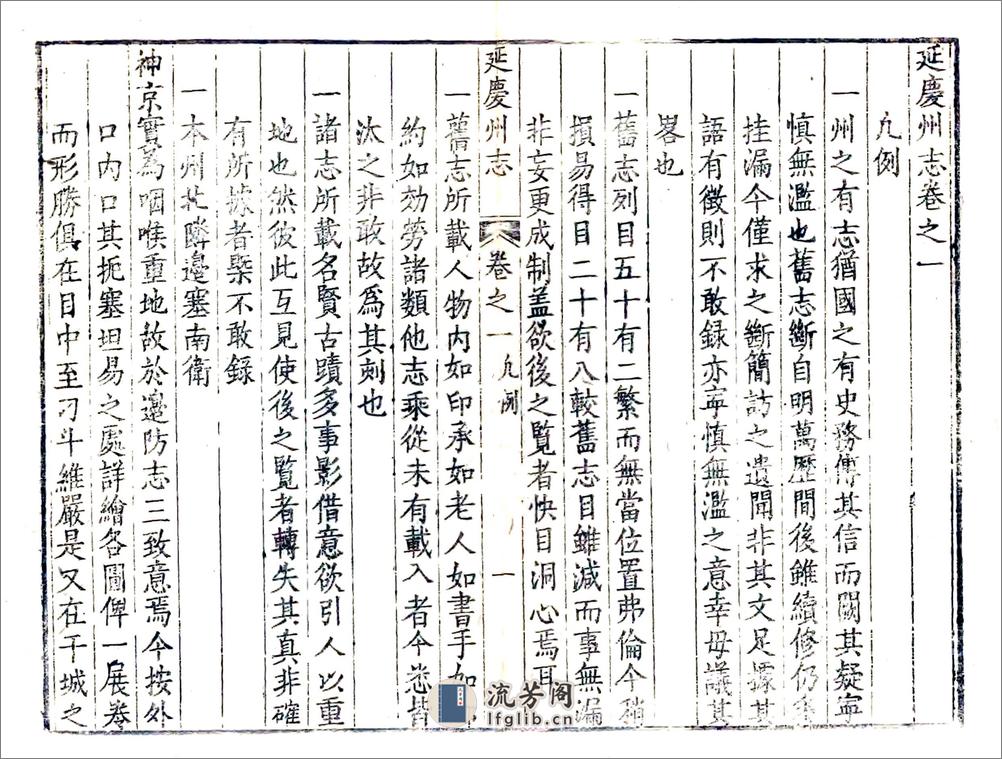 延慶州志卷之一
凡例
一州之有志猶國之有史務傳其信而闕其疑寧
慎無濫也舊志斷自明萬歷間後雖續修仍多
挂漏今僅求之斷簡訪之遺聞非其文足據其
語有徵則不敢録亦寧慎無濫之意幸毋議其
畧也
一舊志列目五十有二繁而無當位置弗倫今稍
損易得目二十有八較舊志目雖減而事無漏
非妄更成制盖欲後之覽者快目洞心焉耳
延慶州志
卷之一
凡例
一
一舊志所載人物内如印承如老人如書手如
約如効勞諸類他志乘從未有載入者今悉皆
汰之非敢故為其刻也
一諸志所載名賢古蹟多事影借意欲引人以重
地也然彼此互見使後之覽者轉失其真非確
有所據者槩不敢録
一本州北隣邊塞南衛
神京實為咽喉重地故於邊防志三致意焉今按外
口内口其扼塞坦易之處詳繪各圖俾一展卷
而形勝俱在目中至刁斗維嚴是又在干城之
流芳阁
lfglib.cn